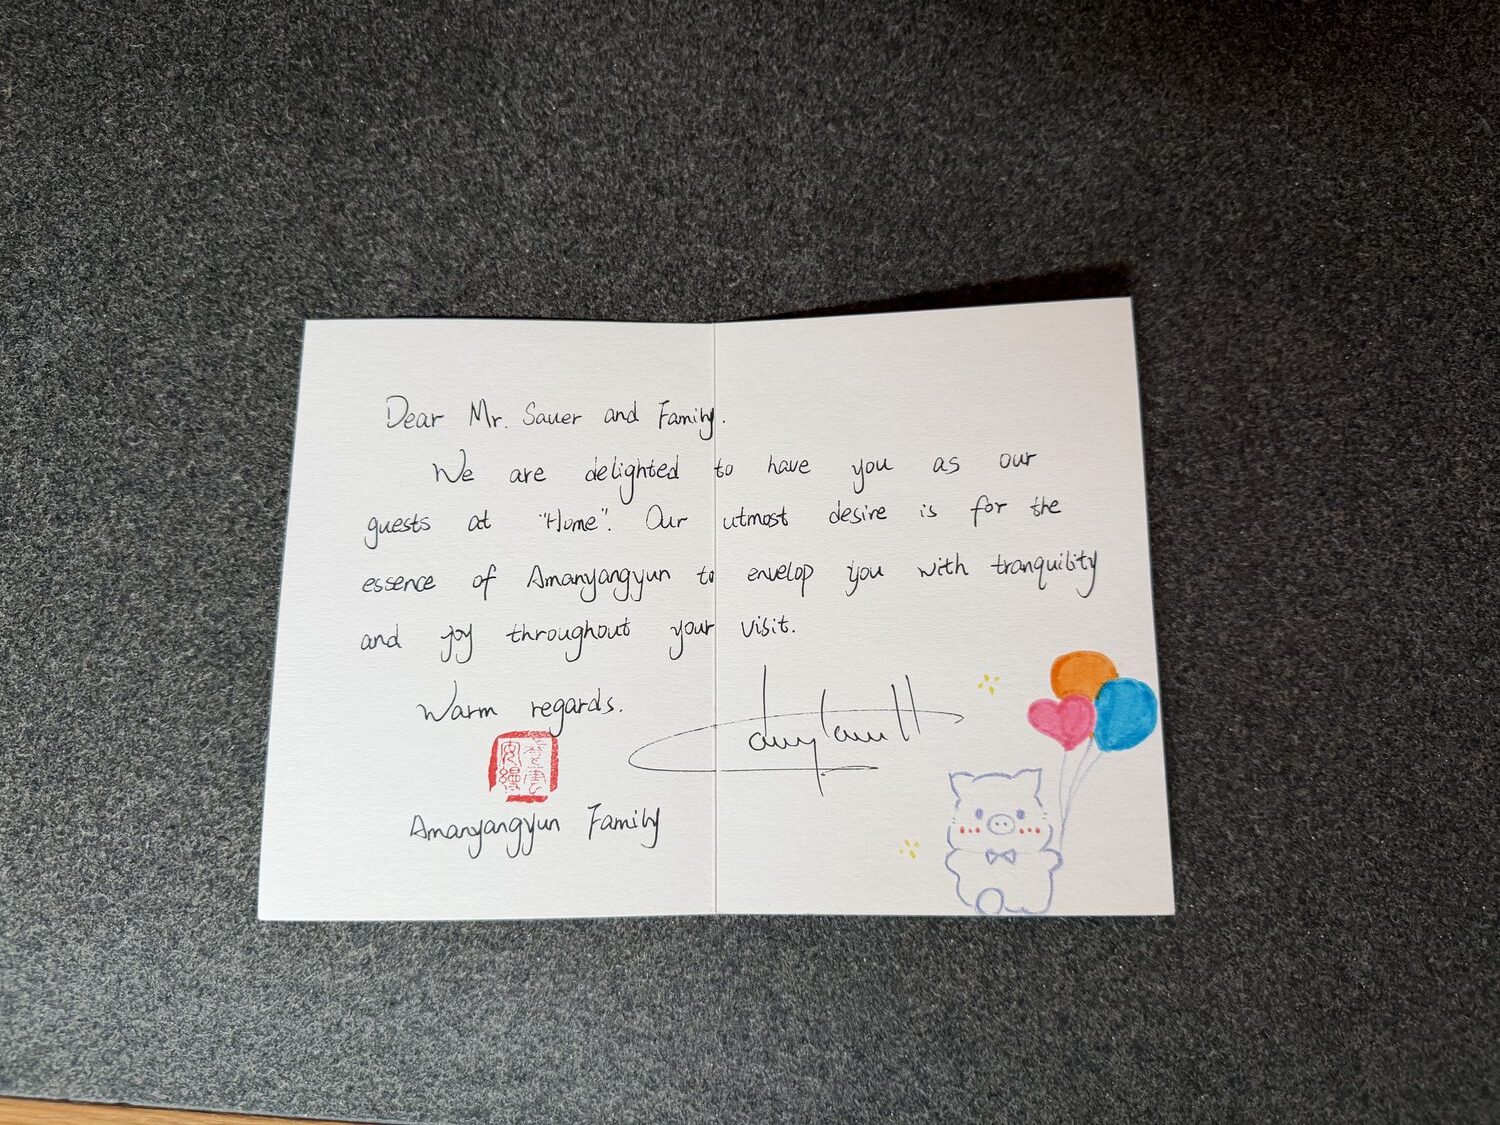 Dear Mr. Sauer and Family.
We are delighted to have you as our
guests at "Home". Our utmost desire is for the
essence of Amanyangyun to envelop you with tranquility
and joy throughout your visit.
Warm regards.
安缦
Amanyangyun Family